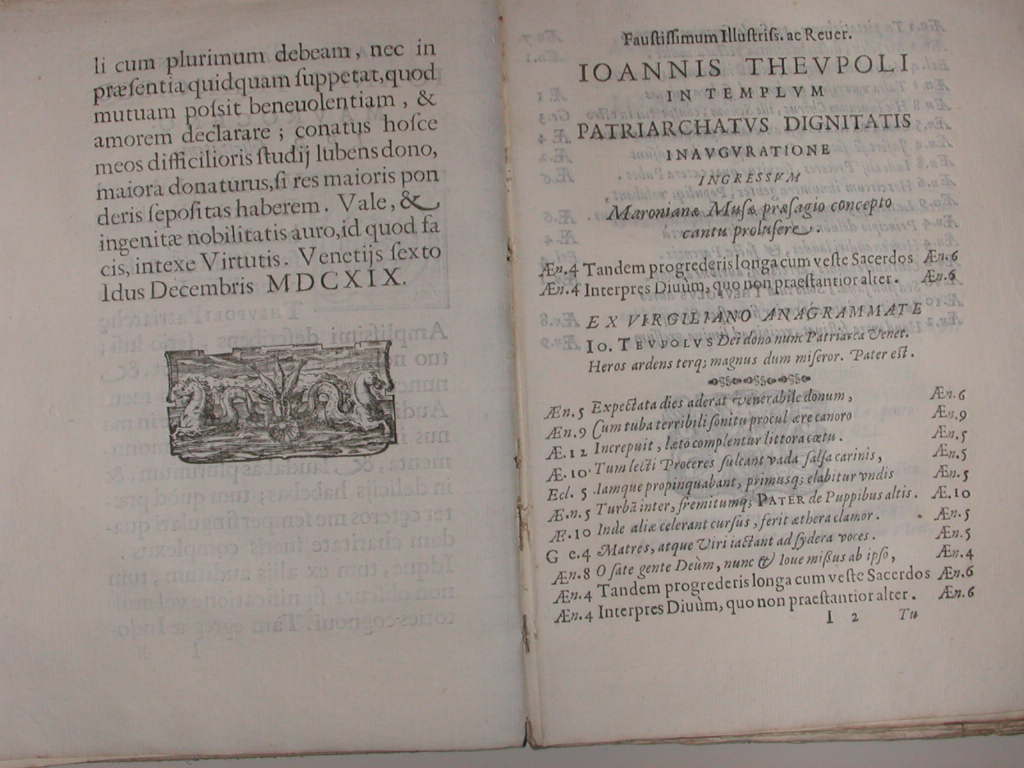 li cum plurimum debeam, nec in
præſentia quidquam ſuppetat, quod
mutuam poſsit beneuolentiam, &
amorem declarare; conatus hoſce
meos difficilioris ſtudij lubens dono,
maiora donaturus, ſi res maioris pon
deris ſepoſitas haberem. Vale, &
ingenitæ nobilitatis auro, id quod fa
cis, intexe Virtutis. Venetijs ſexto
Idus Decembris MDCXIX.
Fauſtiſſimum Illuſtriſs. ac Reuer.
IOANNIS THEVPOLI
IN TEMPLVM
PATRIARCHATVS DIGNITATIS
INAVGVRATIONE
INGRESSVM
Maronianæ Muſæ præſagio concepto
cantu proluſere.
Æn.4 Tandem progrederis longa cum veſte Sacerdos Æn.6
Æn.4 Interpres Diuûm, quo non praeſtantior alter. Æn.6
EX VIRGILIANO ANAGRAMMATE
IO. TEVPOLVS Dei dono nunc Patriarca Venet.
Heros ardens terq; magnus dum miſeror. Pater eſt.
Æn.5 Expectata dies aderat venerabile donum, Æn.6
Æn.9 Cum tuba terribili ſonitu procul ære canoro Æn.9
Æ.12 Increpuit, læto complentur littora cœtu. Æn.5
Æ.10. Tum lecti Proceres ſulcant vada ſalſa carinis, Æn.5
Ecl. 5 Iamque propinquabant, primusq; elabitur vndis Æn.5
Æ.n.5 Turbā inter, fremitumq; PATER de Puppibus altis. Æ.10
Æ.10 Inde aliæ celerant curſus, ferit æthera clamor. Æn.5
G e.4 Matres, atque Viri iactant ad ſydera voces. Æn.5
Æn.8 O ſate gente Deûm, nunc & Ioue miſſus ab ipſo, Æn.4
Æn.4 Tandem progrederis longa cum veſte Sacerdos Æn.6
Æn.4 Interpres Diuûm, quo non praeſtantior alter. Æn.6
I 2 Tu